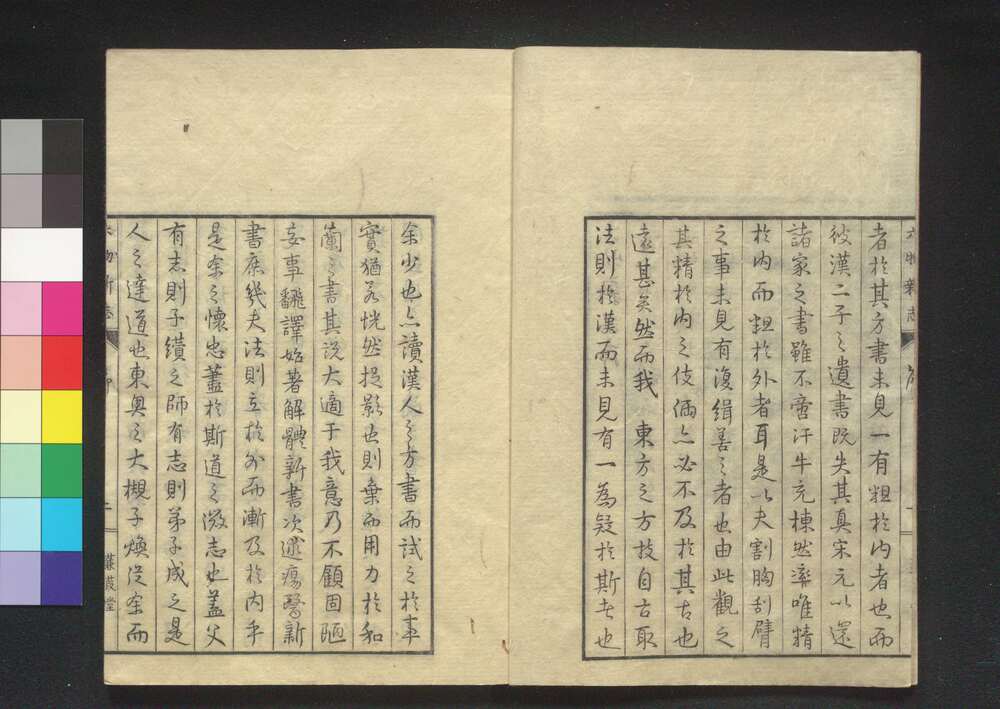 者於其方書未見一有粗於內者也而
彼漢二子之遺書既失其真宋元以還
諸家之書雖不啻汗牛充棟然率唯精
於內而粗於外者耳是以夫割胸刮臂
之事未見有復緝善之者也由此觀之
其精於內之伎倆亦必不及於其古也
遠甚矣然而我 東方之方技自古取
法則於漢而未見有一為疑於斯者也
余少也亦讀漢人之方書而試之於事
實猶若恍然捉影也則棄而用力於和
蘭之書其說大適于我意乃不顧固陋
妄事翻譯始著解體新書次逑瘍醫新
書庶幾夫法則立於外而漸及於內乎
是余之懷忠藎於斯道之微志也蓋父
有志則子績之師有志則弟子成之是
人之達道也東奧之大槻子煥從余而
六物新志 序 二 蒹葭堂